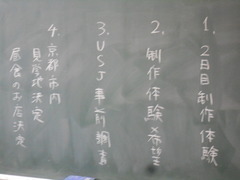 1．2日目制作体験
2．制作体験希望
3．USJ事前調書
4．京都市内
見学地決定
昼食のお店決定